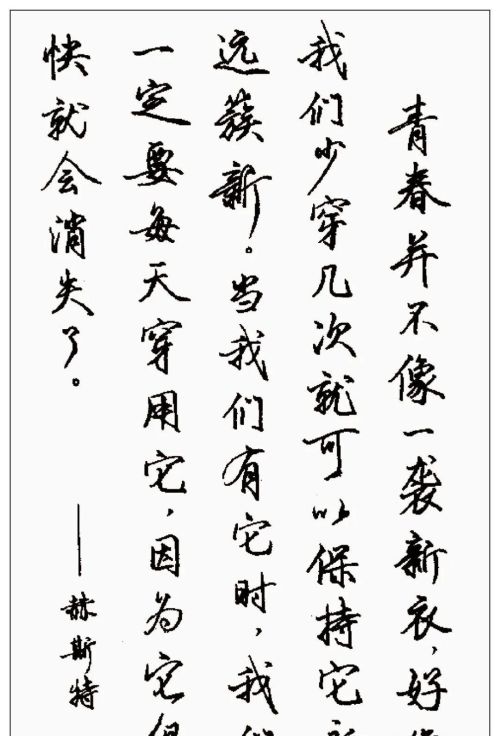 青春并不像一袭新衣，好
我们少穿几次就可以保持它
远簇新。当我们有它时，我们
一定要每天穿用它，因为它
快就会消失了。
——赫斯特